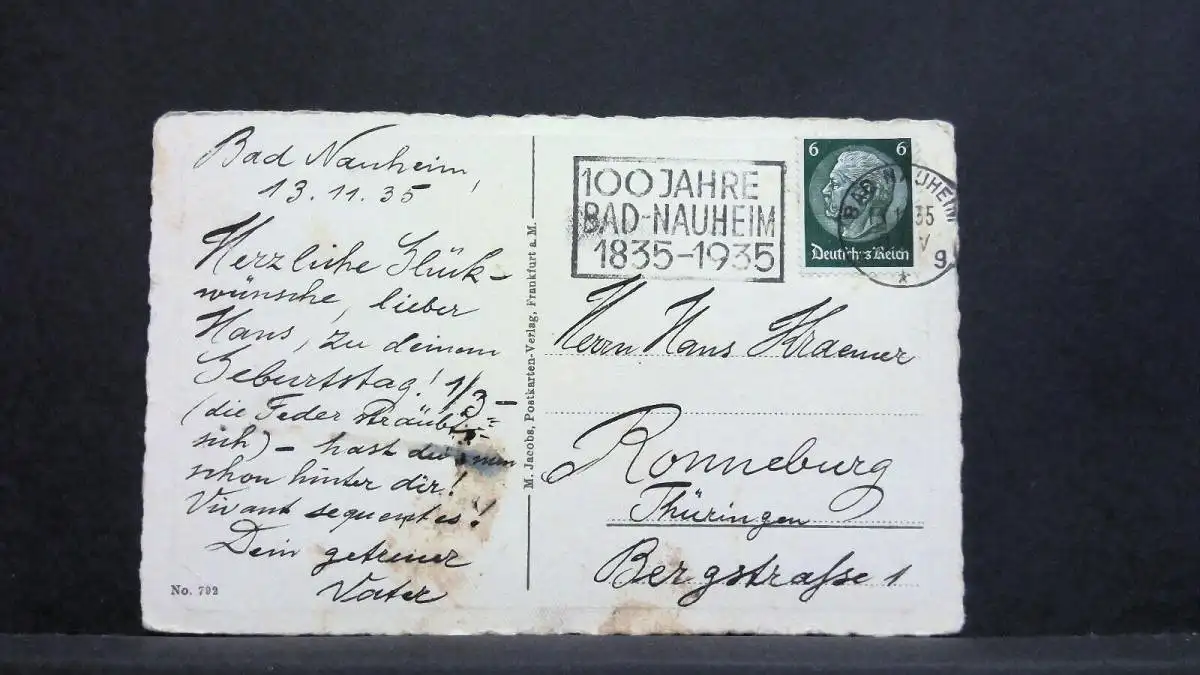 Bad Nauheim,
13.11.35
Herzliche Glück-
wünsche, lieber
Hans, zu deinem
Geburtstag! 1/3 -
(die Feder sträubt
sich) - hast du
schon hinter dir!
Vivant sequentes!
Dein getreuer
Vater
No. 792
M. Jacobs, Postkarten-Verlag, Frankfurt a. M.
100 JAHRE
BAD-NAUHEIM
1835-1935
6 6
Deutsches Reich
BAD NAUHEIM
35
V
g
Herrn Hans Kraemer
Ronneburg
Thüringen
Bergstraße 1